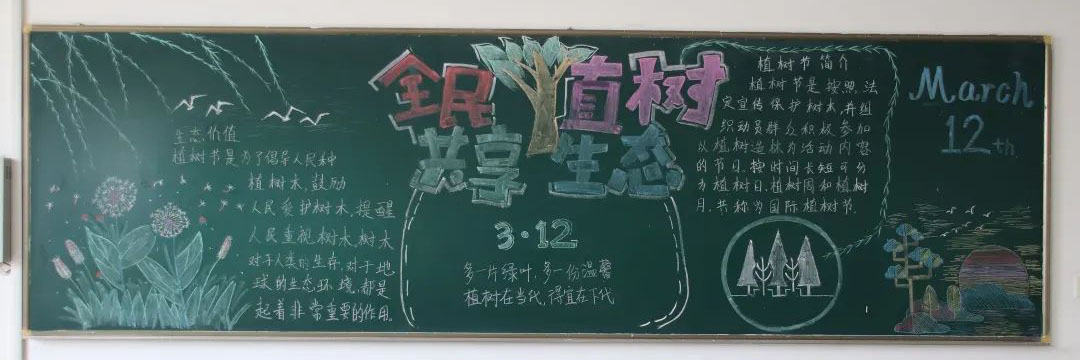 生态价值
植树节是为了倡导人民种
植树木,鼓励
人民爱护树木,提醒
人民重视树木,树木
对于人类的生存,对于地
球的生态环境,都是
起着非常重要的作用。
全民植树
共享生态
3·12
多一片绿叶,多一份温馨
植树在当代,得宜在下代
植树节简介
植树节是按照法
定宣传保护树木,并组
织动员群众积极参加
以植树造林为活动内容
的节日。按时间长短可分
为植树日、植树周和植树
月,共称为国际植树节。
March
12th